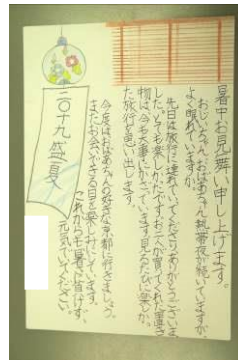 暑中お見舞い申し上げます。
おじいちゃん、おばあちゃん熱帯夜が続いていますが、
よく眠れていますか。
先日は旅行に連れていってくださりありがとうございま
した。とても楽しかったです。お土産で買ってくれた置き
物は、今も大事にかざっています。見るたびに楽しかっ
た旅行を思い出します。
今度はおばあちゃんの好きな京都に行きましょう。
またお会いできる日を楽しみにしています。
これからも暑さに負けず、
元気でいてください。
二〇十九 盛夏